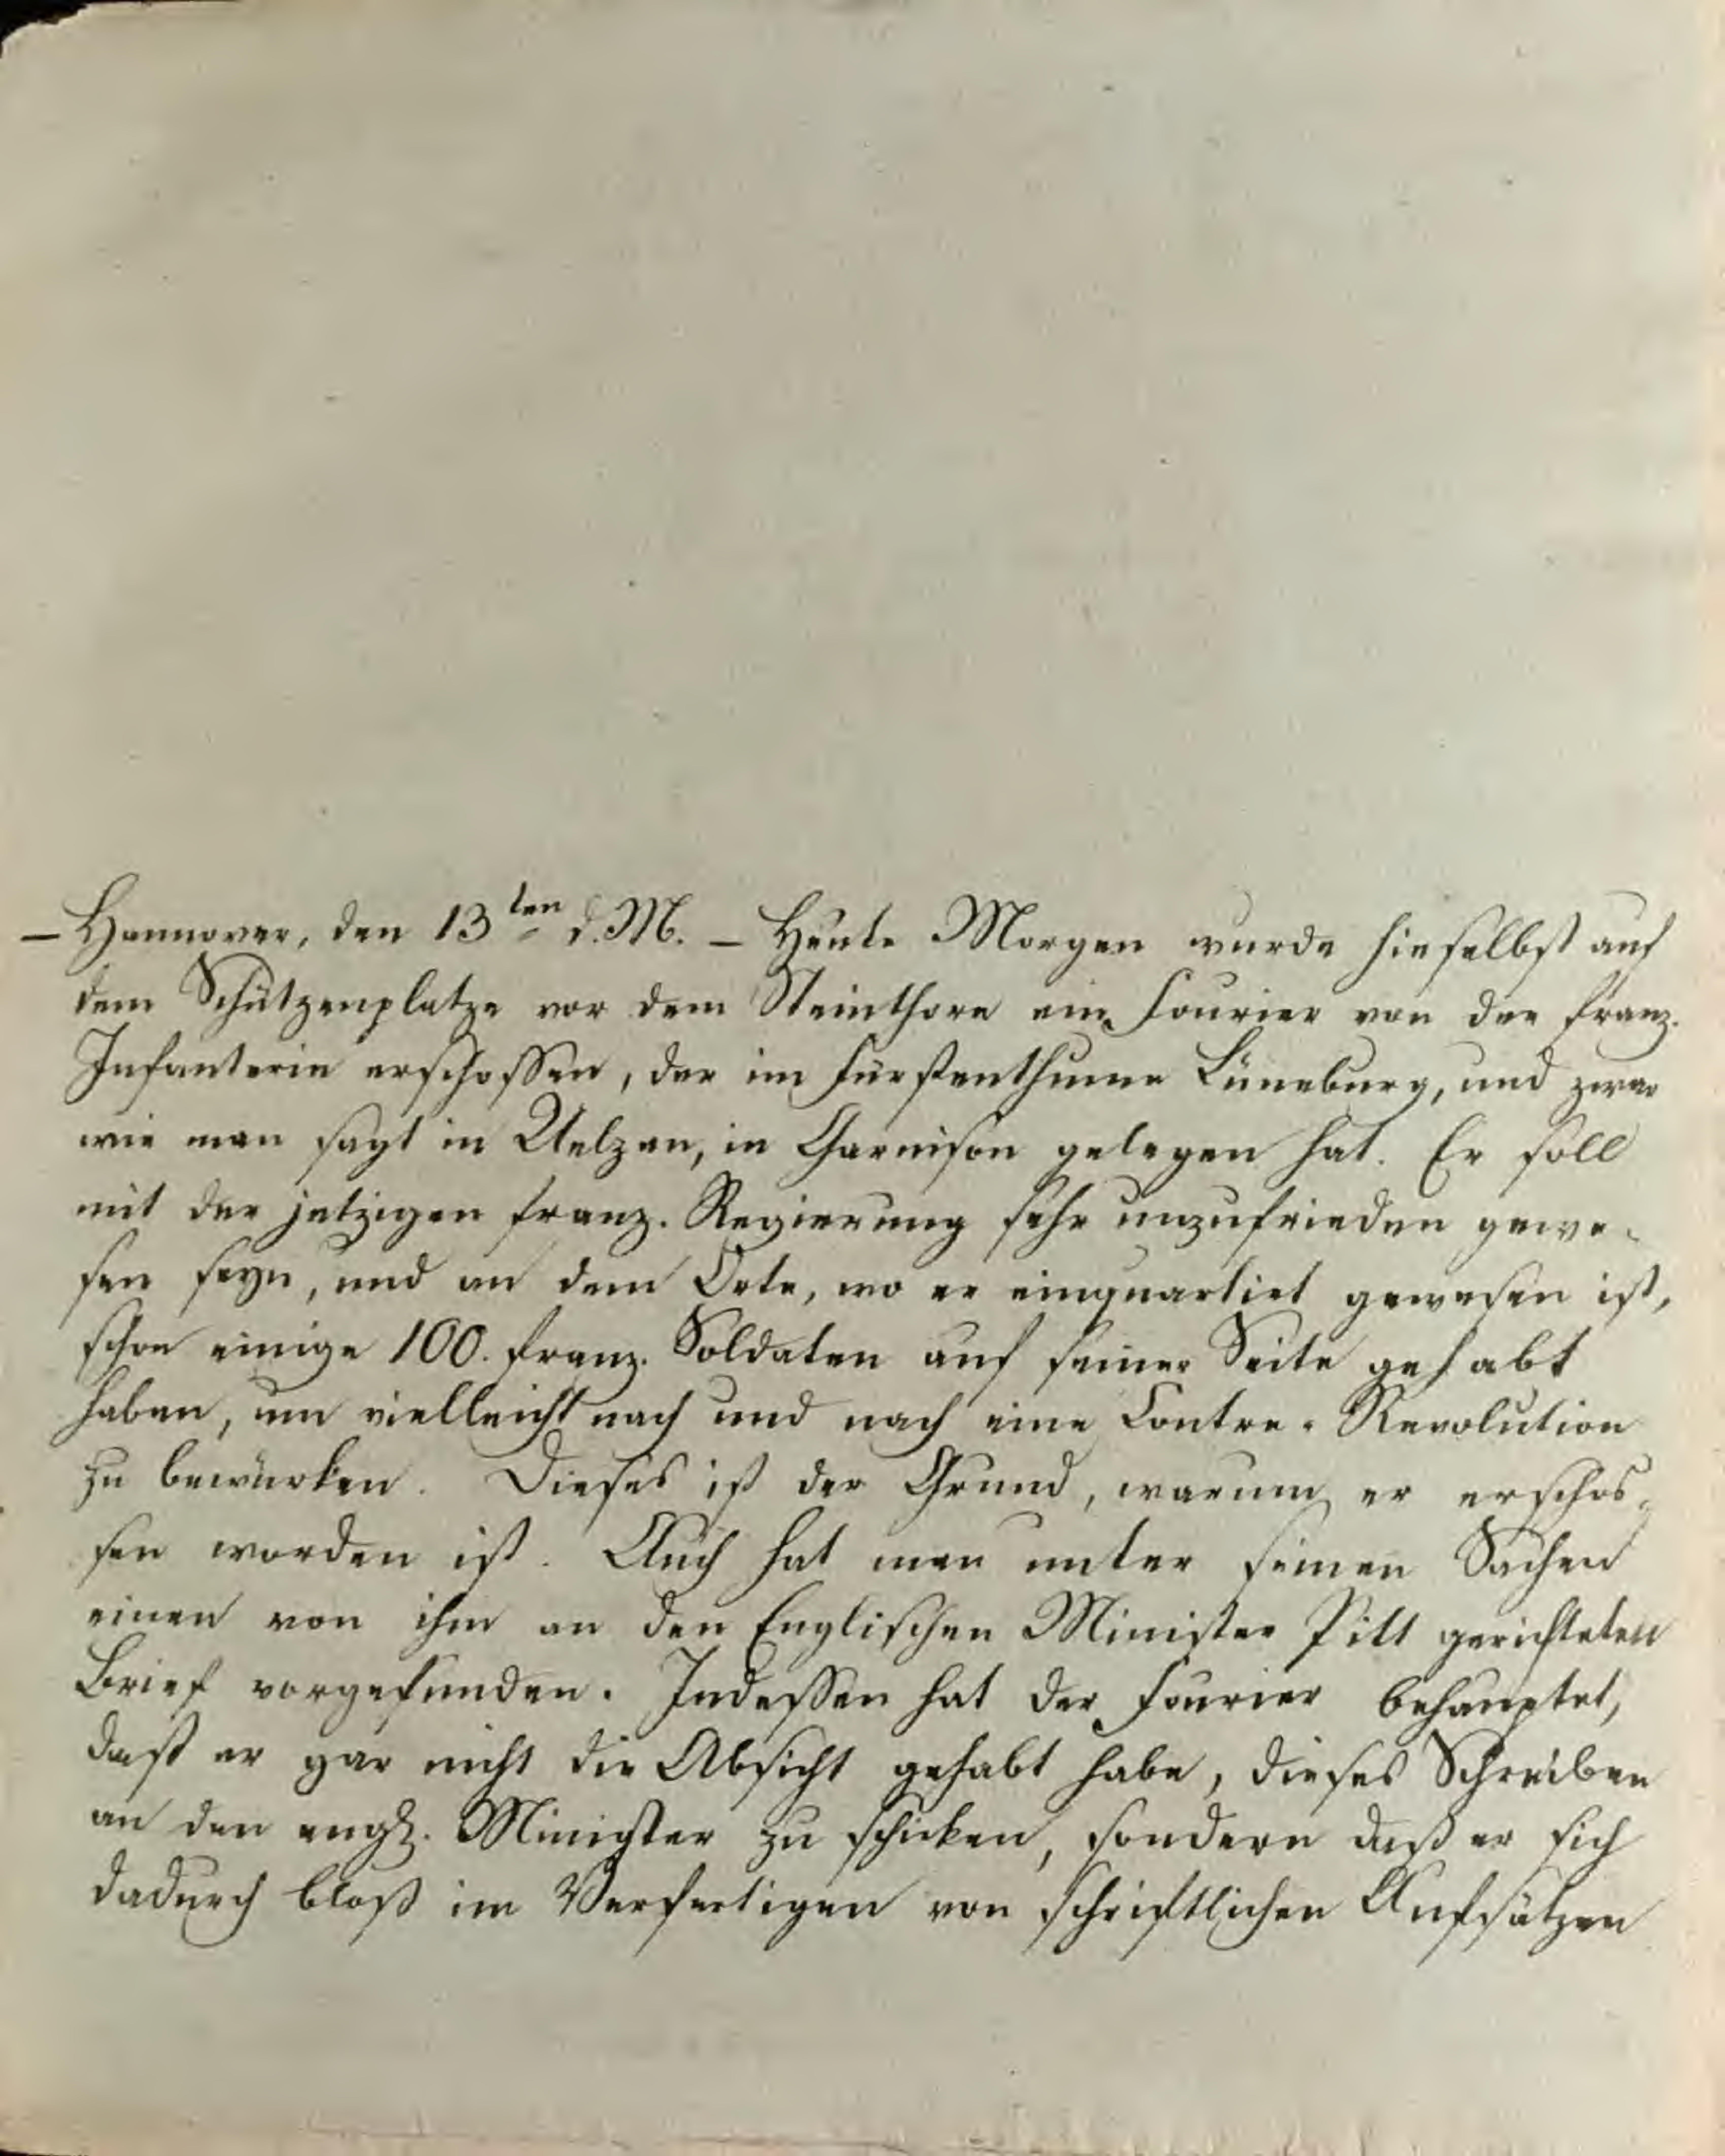 — Hannover, den 13ten d. M. — Heute Morgen wurde hieselbst auf
dem Schützenplatze vor dem Steinthore ein Fourier von der franz.
Infanterie erschossen, der im Fürstenthume Lüneburg, und zwar
wie man sagt in Uelzen, in Garnison gelegen hat. Er soll
mit der jetzigen franz. Regierung sehr unzufrieden gewe-
sen seyn, und an dem Orte, wo er einquartirt gewesen ist,
schon einige 100. franz. Soldaten auf seiner Seite gehabt
haben, um vielleicht nach und nach eine Contre-Revolution
zu bewürken. Dieses ist der Grund, warum er erschos-
sen worden ist. Auch hat man unter seinen Sachen
einen von ihm an den Englischen Minister Pitt gerichteten
Brief vorgefunden. Indessen hat der Fourier behauptet,
daß er gar nicht die Absicht gehabt habe, dieses Schreiben
an den engl. Minister zu schicken, sondern daß er sich
dadurch bloß im Verfertigen von schriftlichen Aufsätzen